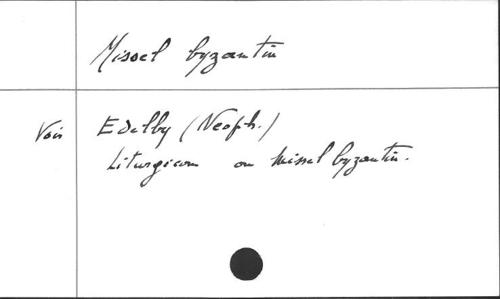 Missel byzantin
Voir Edelby (Neoph.)
Liturgicon ou Missel byzantin.